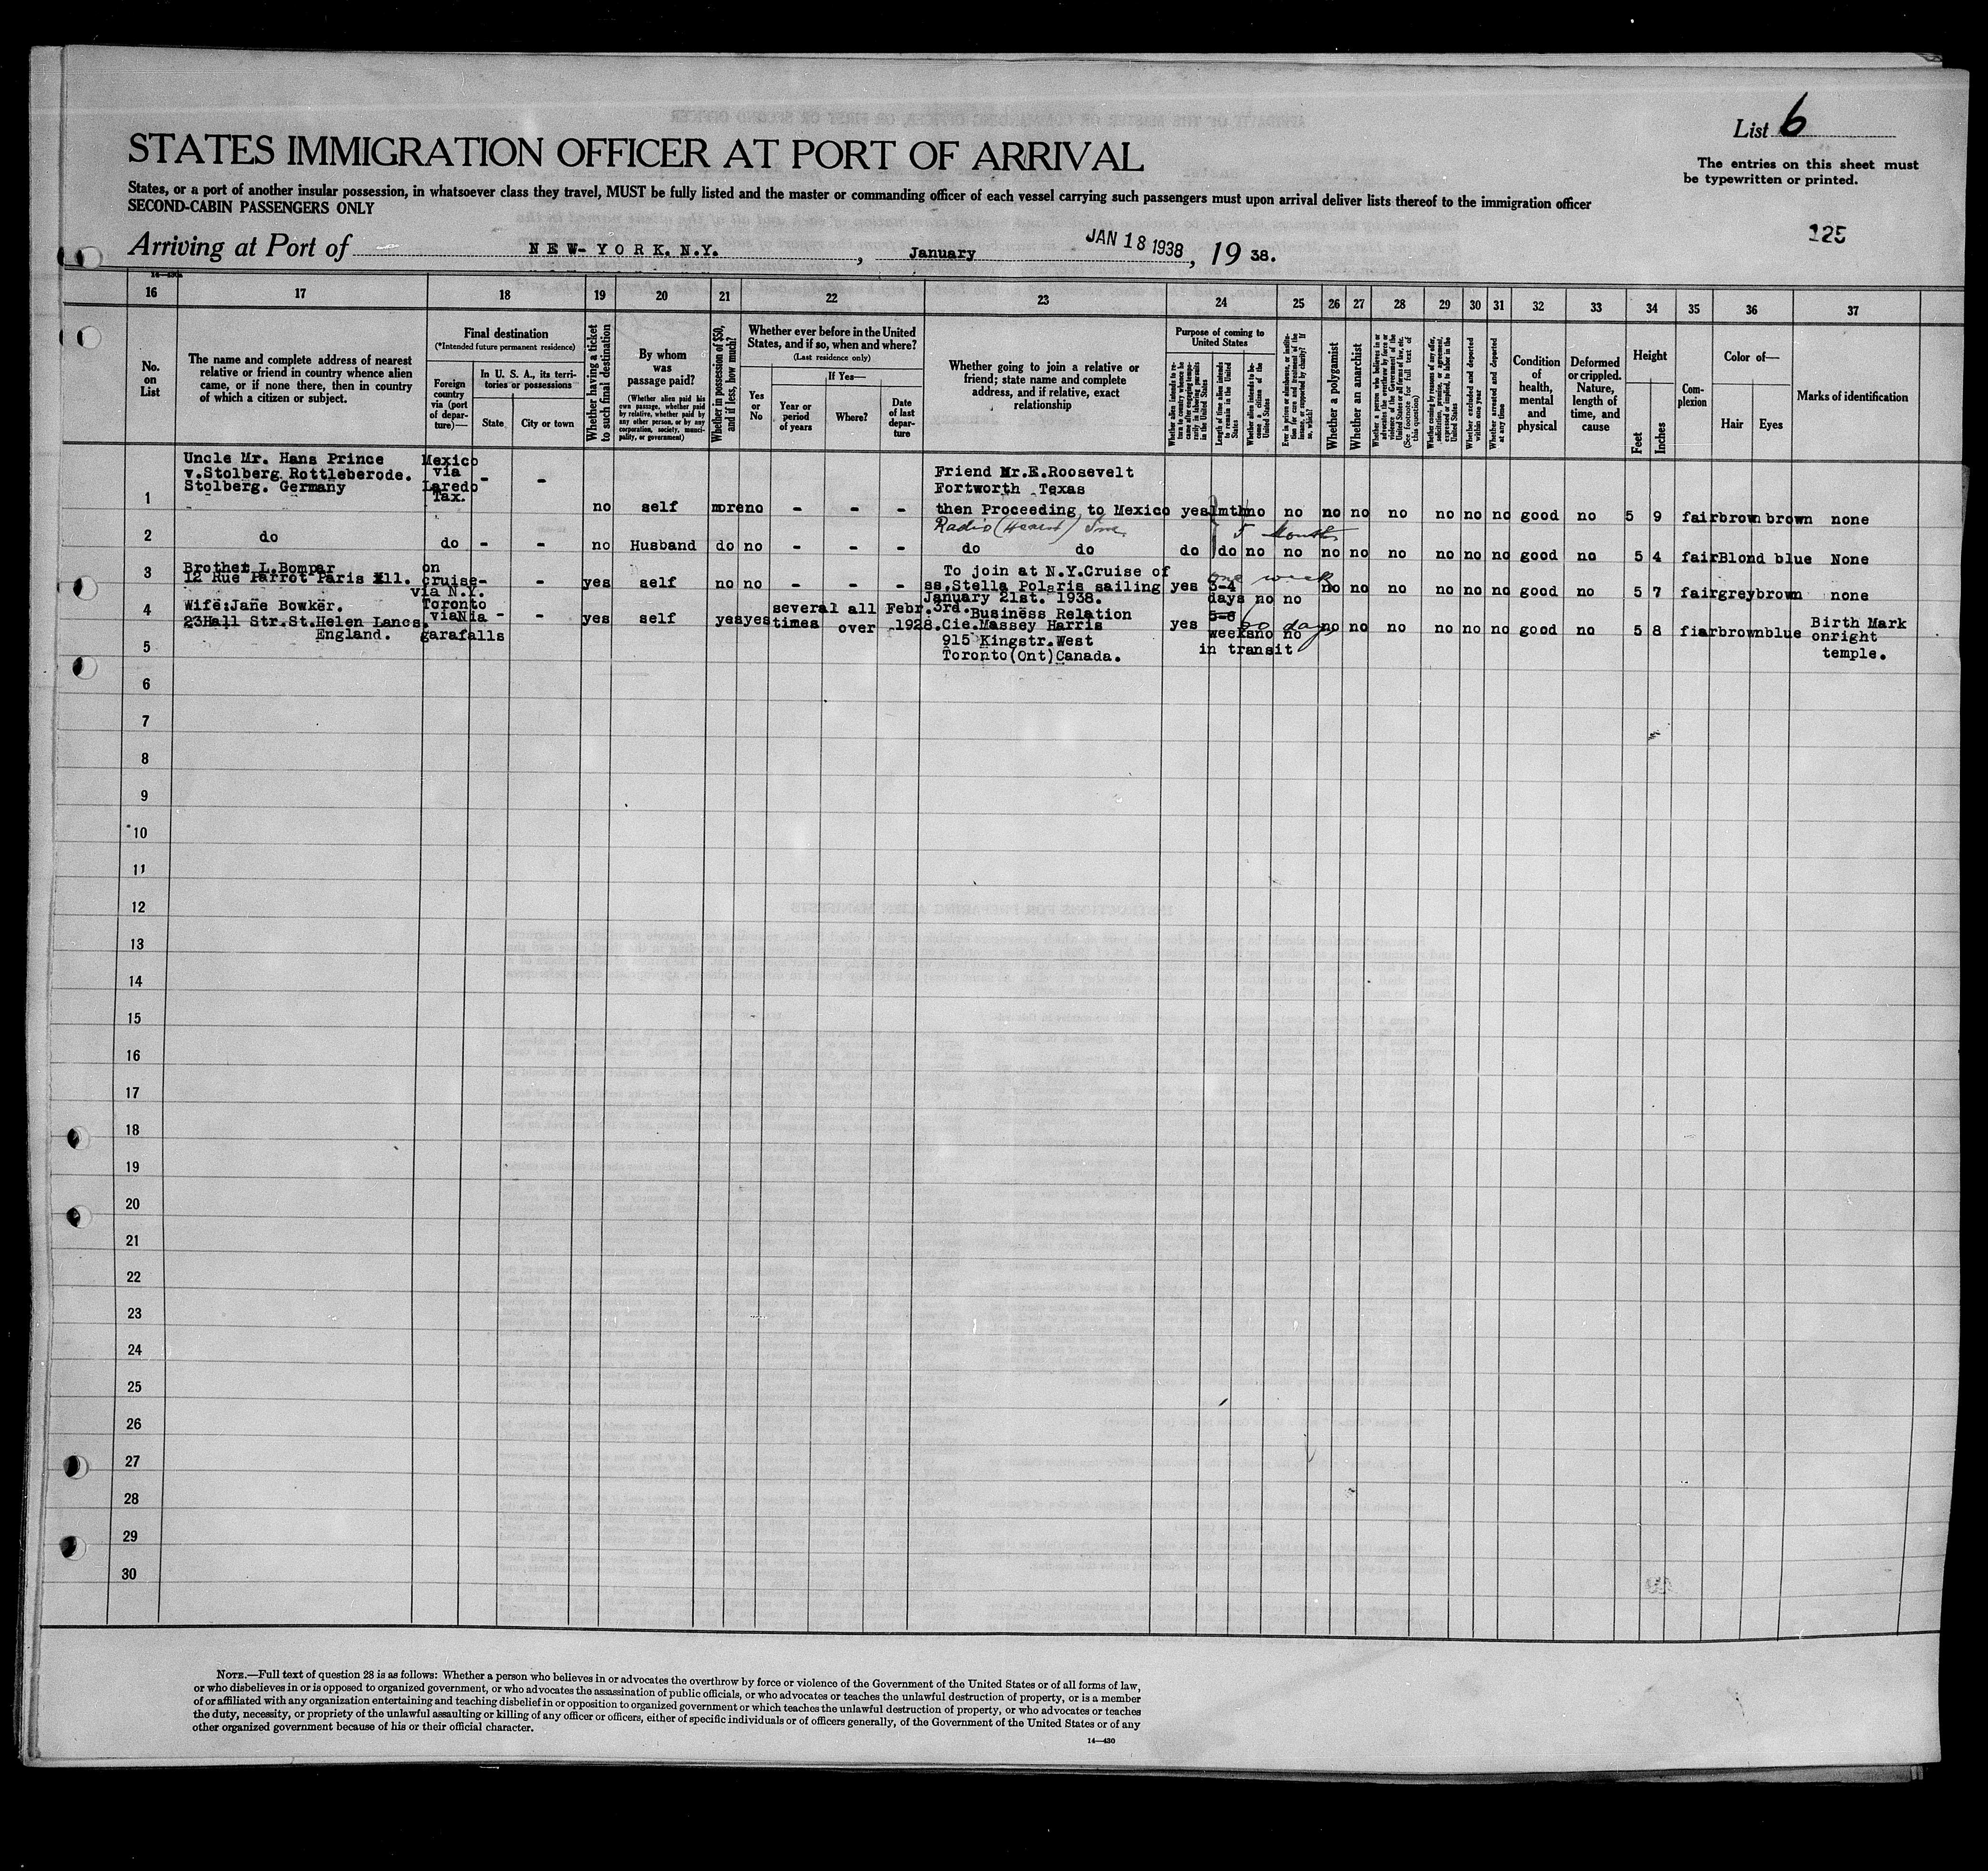 List 6
The entries on this sheet must
be typewritten or printed.
STATES IMMIGRATION OFFICER AT PORT OF ARRIVAL
States, or a port of another insular possession, in whatsoever class they travel, MUST be fully listed and the master or commanding officer of each vessel carrying such passengers must upon arrival deliver lists thereof to the immigration officer
SECOND-CABIN PASSENGERS ONLY
125
Arriving at Port of NEW-YORK. N.Y., January JAN 18 1938, 19 38.
16 17 18 19 20 21 22 23 24 25 26 27 28 29 30 31 32 33 34 35 36 37
No. on List
The name and complete address of nearest relative or friend in country whence alien came, or if none there, then in country of which a citizen or subject.
Final destination
(*Intended future permanent residence)
Foreign country via (port of departure)—
In U. S. A., its territories or possessions
State
City or town
Whether having a ticket to such final destination
By whom was passage paid?
(Whether alien paid his own passage, whether paid by relative, whether paid by any other person, or by any corporation, society, municipality, or government)
Whether in possession of $50, and if less, how much?
Whether ever before in the United States, and if so, when and where?
(Last residence only)
Yes or No
If Yes—
Year or period of years
Where?
Date of last departure
Whether going to join a relative or friend; state name and complete address, and if relative, exact relationship
Purpose of coming to United States
Length of time alien intends to remain in the United States
Whether alien intends to become a citizen of the United States
Whether a polygamist
Whether an anarchist
(See footnote for full text of this question)
Whether excluded and deported within one year
Whether arrested and deported at any time
Condition of health, mental and physical
Deformed or crippled. Nature, length of time, and cause
Height
Feet
Inches
Complexion
Color of—
Hair
Eyes
Marks of identification
1 Uncle Mr. Hans Prince
v.Stolberg Rottleberode.
Stolberg. Germany
Mexico via Laredo Tax. - - no self more no - - -
Friend Mr.E.Roosevelt
Fortworth Texas
then Proceeding to Mexico yes 1mth no no no no no no no no good no 5 9 fair brown brown none
Radio (Hearst) Inc. 5 Months
2 do do - - no Husband do no - - - do do do do no no no no no no no no good no 5 4 fair Blond blue None
3 Brothet L.Bompar
12 Rue Parrot Paris Xll.
on cruise via N.Y. - - yes self no no - - -
To join at N.Y.Cruise of
ss.Stella Polaris sailing
January 21st. 1938.
yes 3-4 days one week no no no no no no no no good no 5 7 fair grey brown none
4 Wife:Jane Bowker.
23Hall Str.St.Helen Lancs.
England.
Toronto viaNia garafalls - - yes self yes yes several times all over Febr.3rd. 1928.
Business Relation
Cie.Massey Harris
915 Kingstr.West
Toronto(Ont)Canada.
yes 5-6 weeks 60 days no no no no no no no no good no 5 8 fiar brown blue Birth Mark
onright
temple.
in transit
5
6
7
8
9
10
11
12
13
14
15
16
17
18
19
20
21
22
23
24
25
26
27
28
29
30
NOTE.—Full text of question 28 is as follows: Whether a person who believes in or advocates the overthrow by force or violence of the Government of the United States or of all forms of law,
or who disbelieves in or is opposed to organized government, or who advocates the assassination of public officials, or who advocates or teaches the unlawful destruction of property, or is a member
of or affiliated with any organization entertaining and teaching disbelief in or opposition to organized government or which teaches the unlawful destruction of property, or who advocates or teaches
the duty, necessity, or propriety of the unlawful assaulting or killing of any officer or officers, either of specific individuals or of officers generally, of the Government of the United States or of any
other organized government because of his or their official character.
14—430